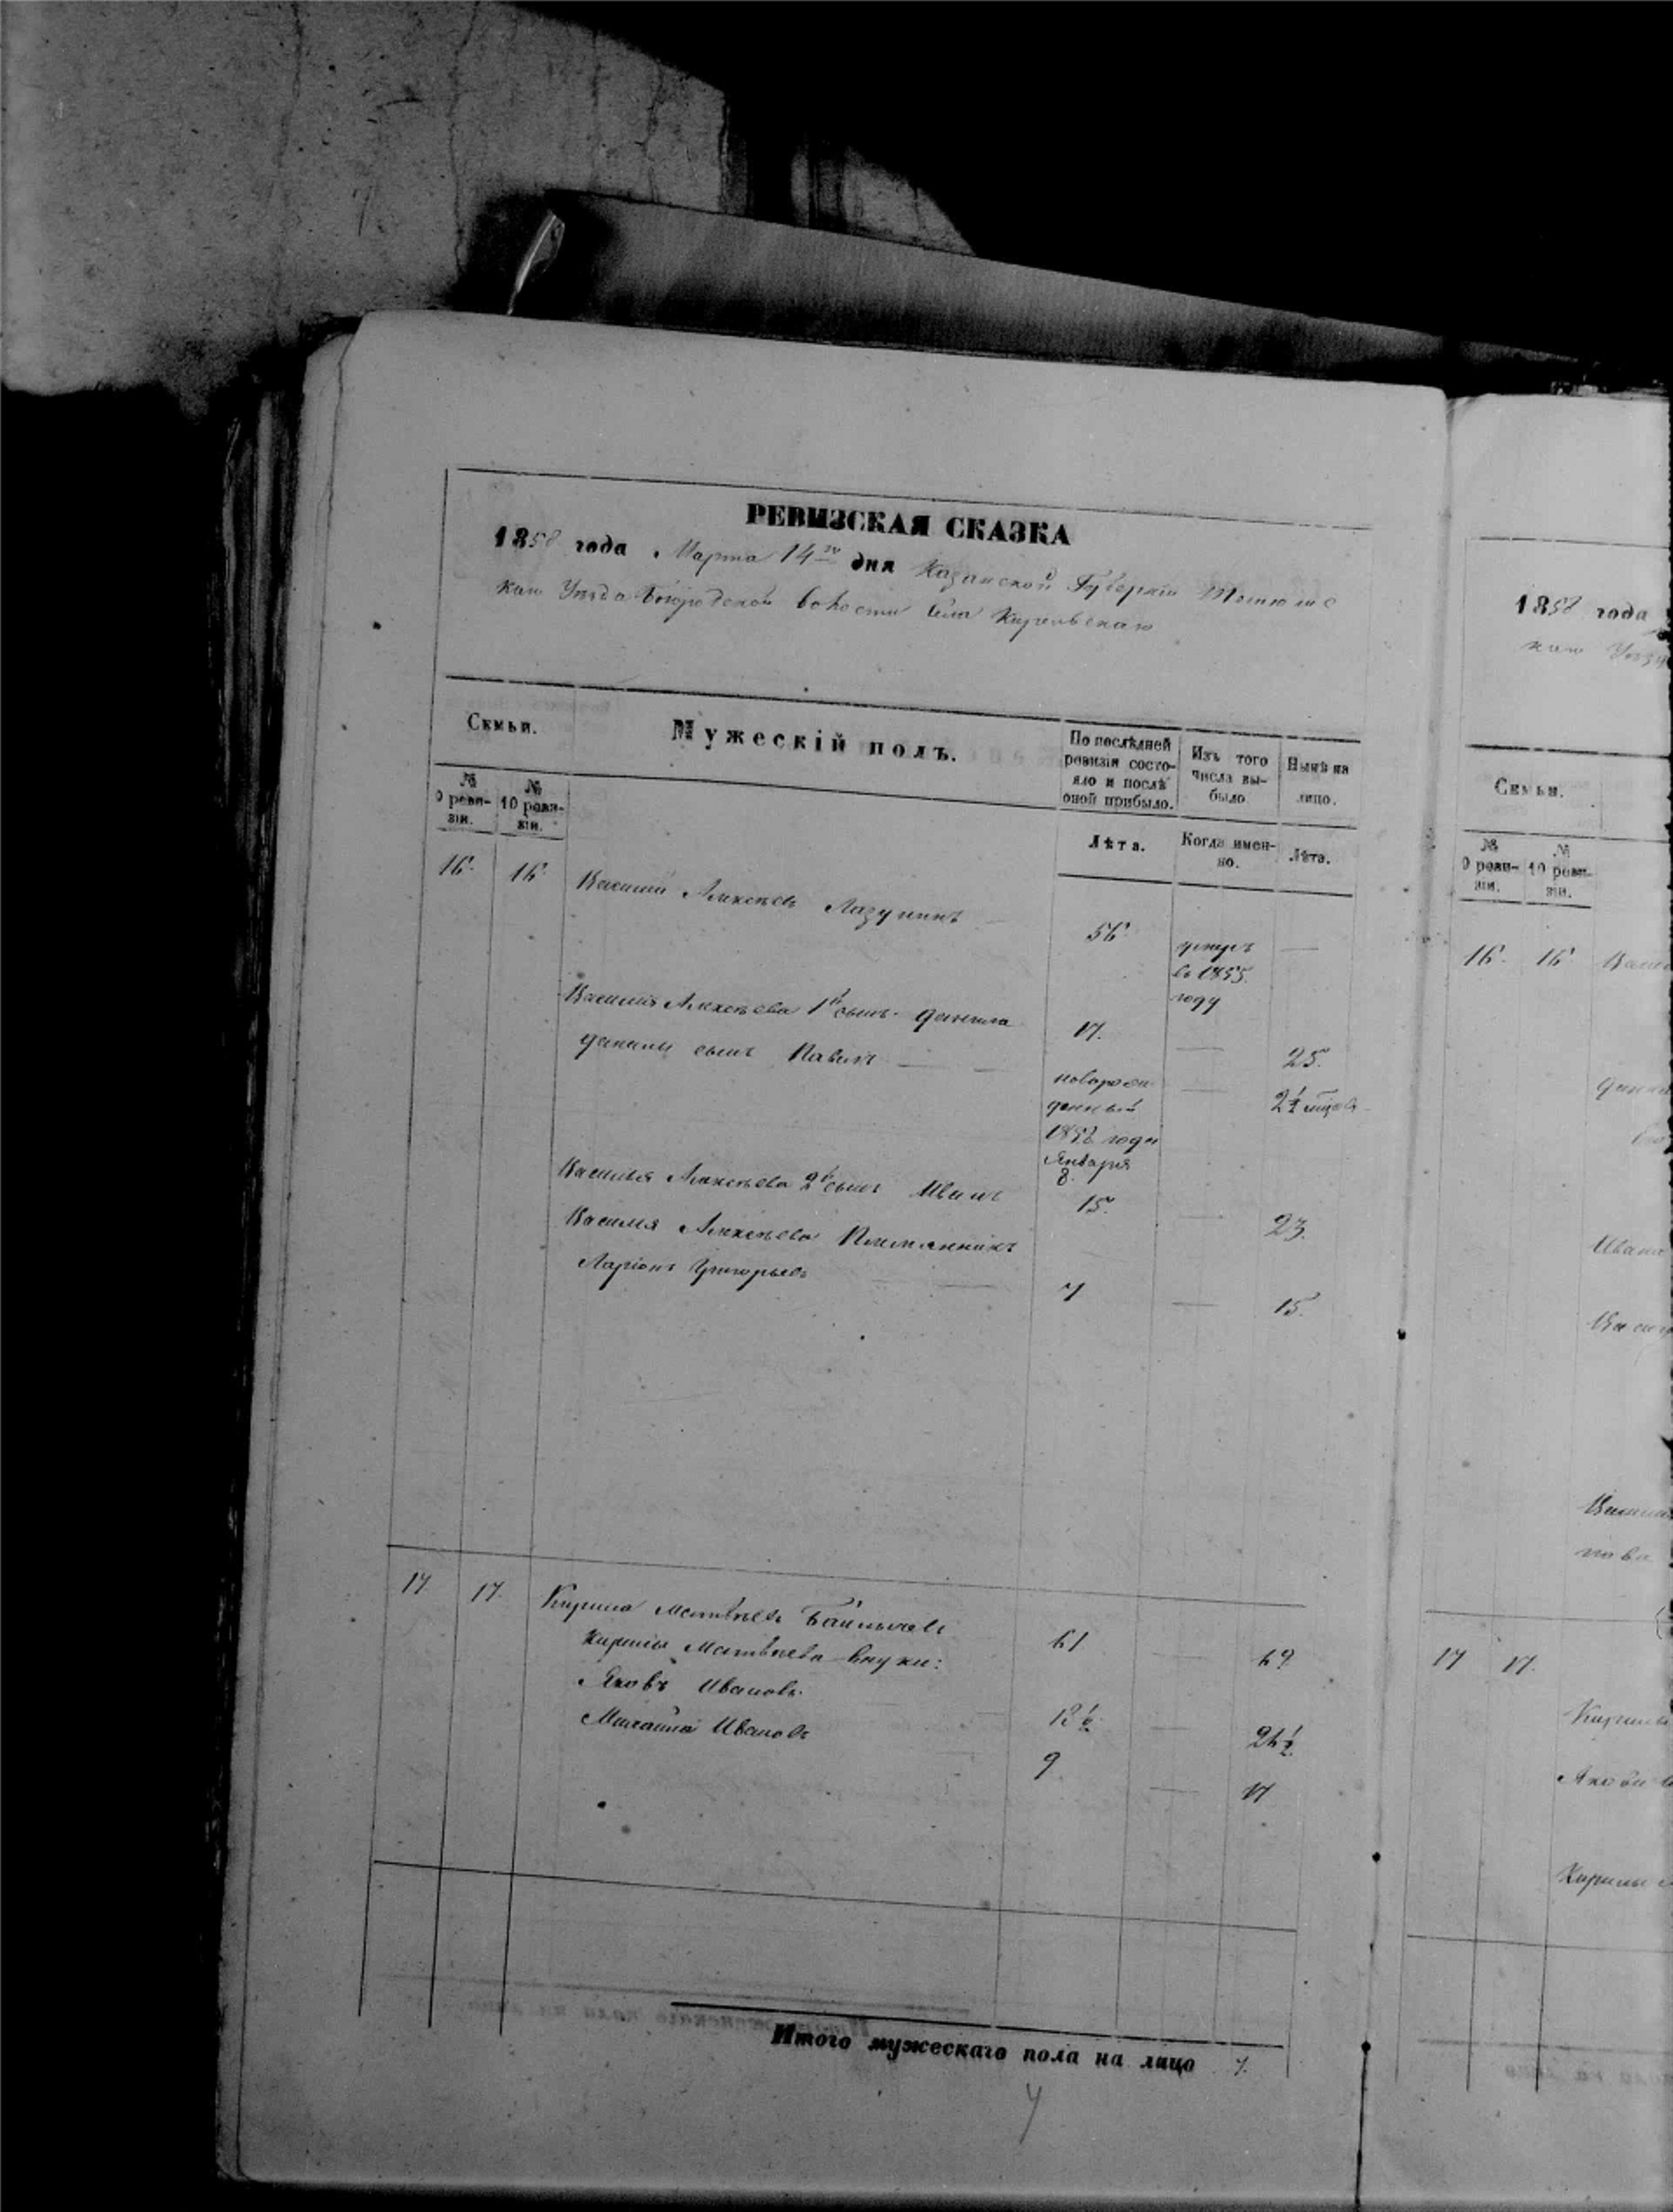 РЕВИЗСКАЯ СКАЗКА
1858 года Марта 14го дня Казанской Губерніи Тетюшс
каго Уѣзда Богородской волости Села
Семьи.
Мужескій полъ.
По послѣдней ревизіи состояло и послѣ оной прибыло.
Изъ того числа выбыло
Нынѣ на лицо.
№ 9 ревизіи.
№ 10 ревизіи.
Лѣта.
Когда именно.
Лѣта.
16. 16 Василій Алексѣевъ Лазунинъ 56. —
умеръ
въ 1855
году
Василія Алексѣева 1й сынъ Данила 17. — 25.
Данилы сынъ Павелъ — — новорож — 2½ мѣсяв.
денный
1858 года
Января
8.
Василья Алексѣева 2й сынъ Иванъ 15. — 23.
Василія Алексѣева Племянникъ
Ларіонъ Григорьевъ — 7 — 15.
17 17. Кирила Матвѣевъ 61 — 69
Кирилы Матвѣева внуки:
Яковъ Ивановъ — 26½
Михайла Ивановъ 9 — 17
Итого мужескаго пола на лицо 7.
1858 года
каго
Семьи.
№ 9 ревизіи.
№ 10 ревизіи.
16. 16
Ивана
17 17.
Кирилы
Кирилы